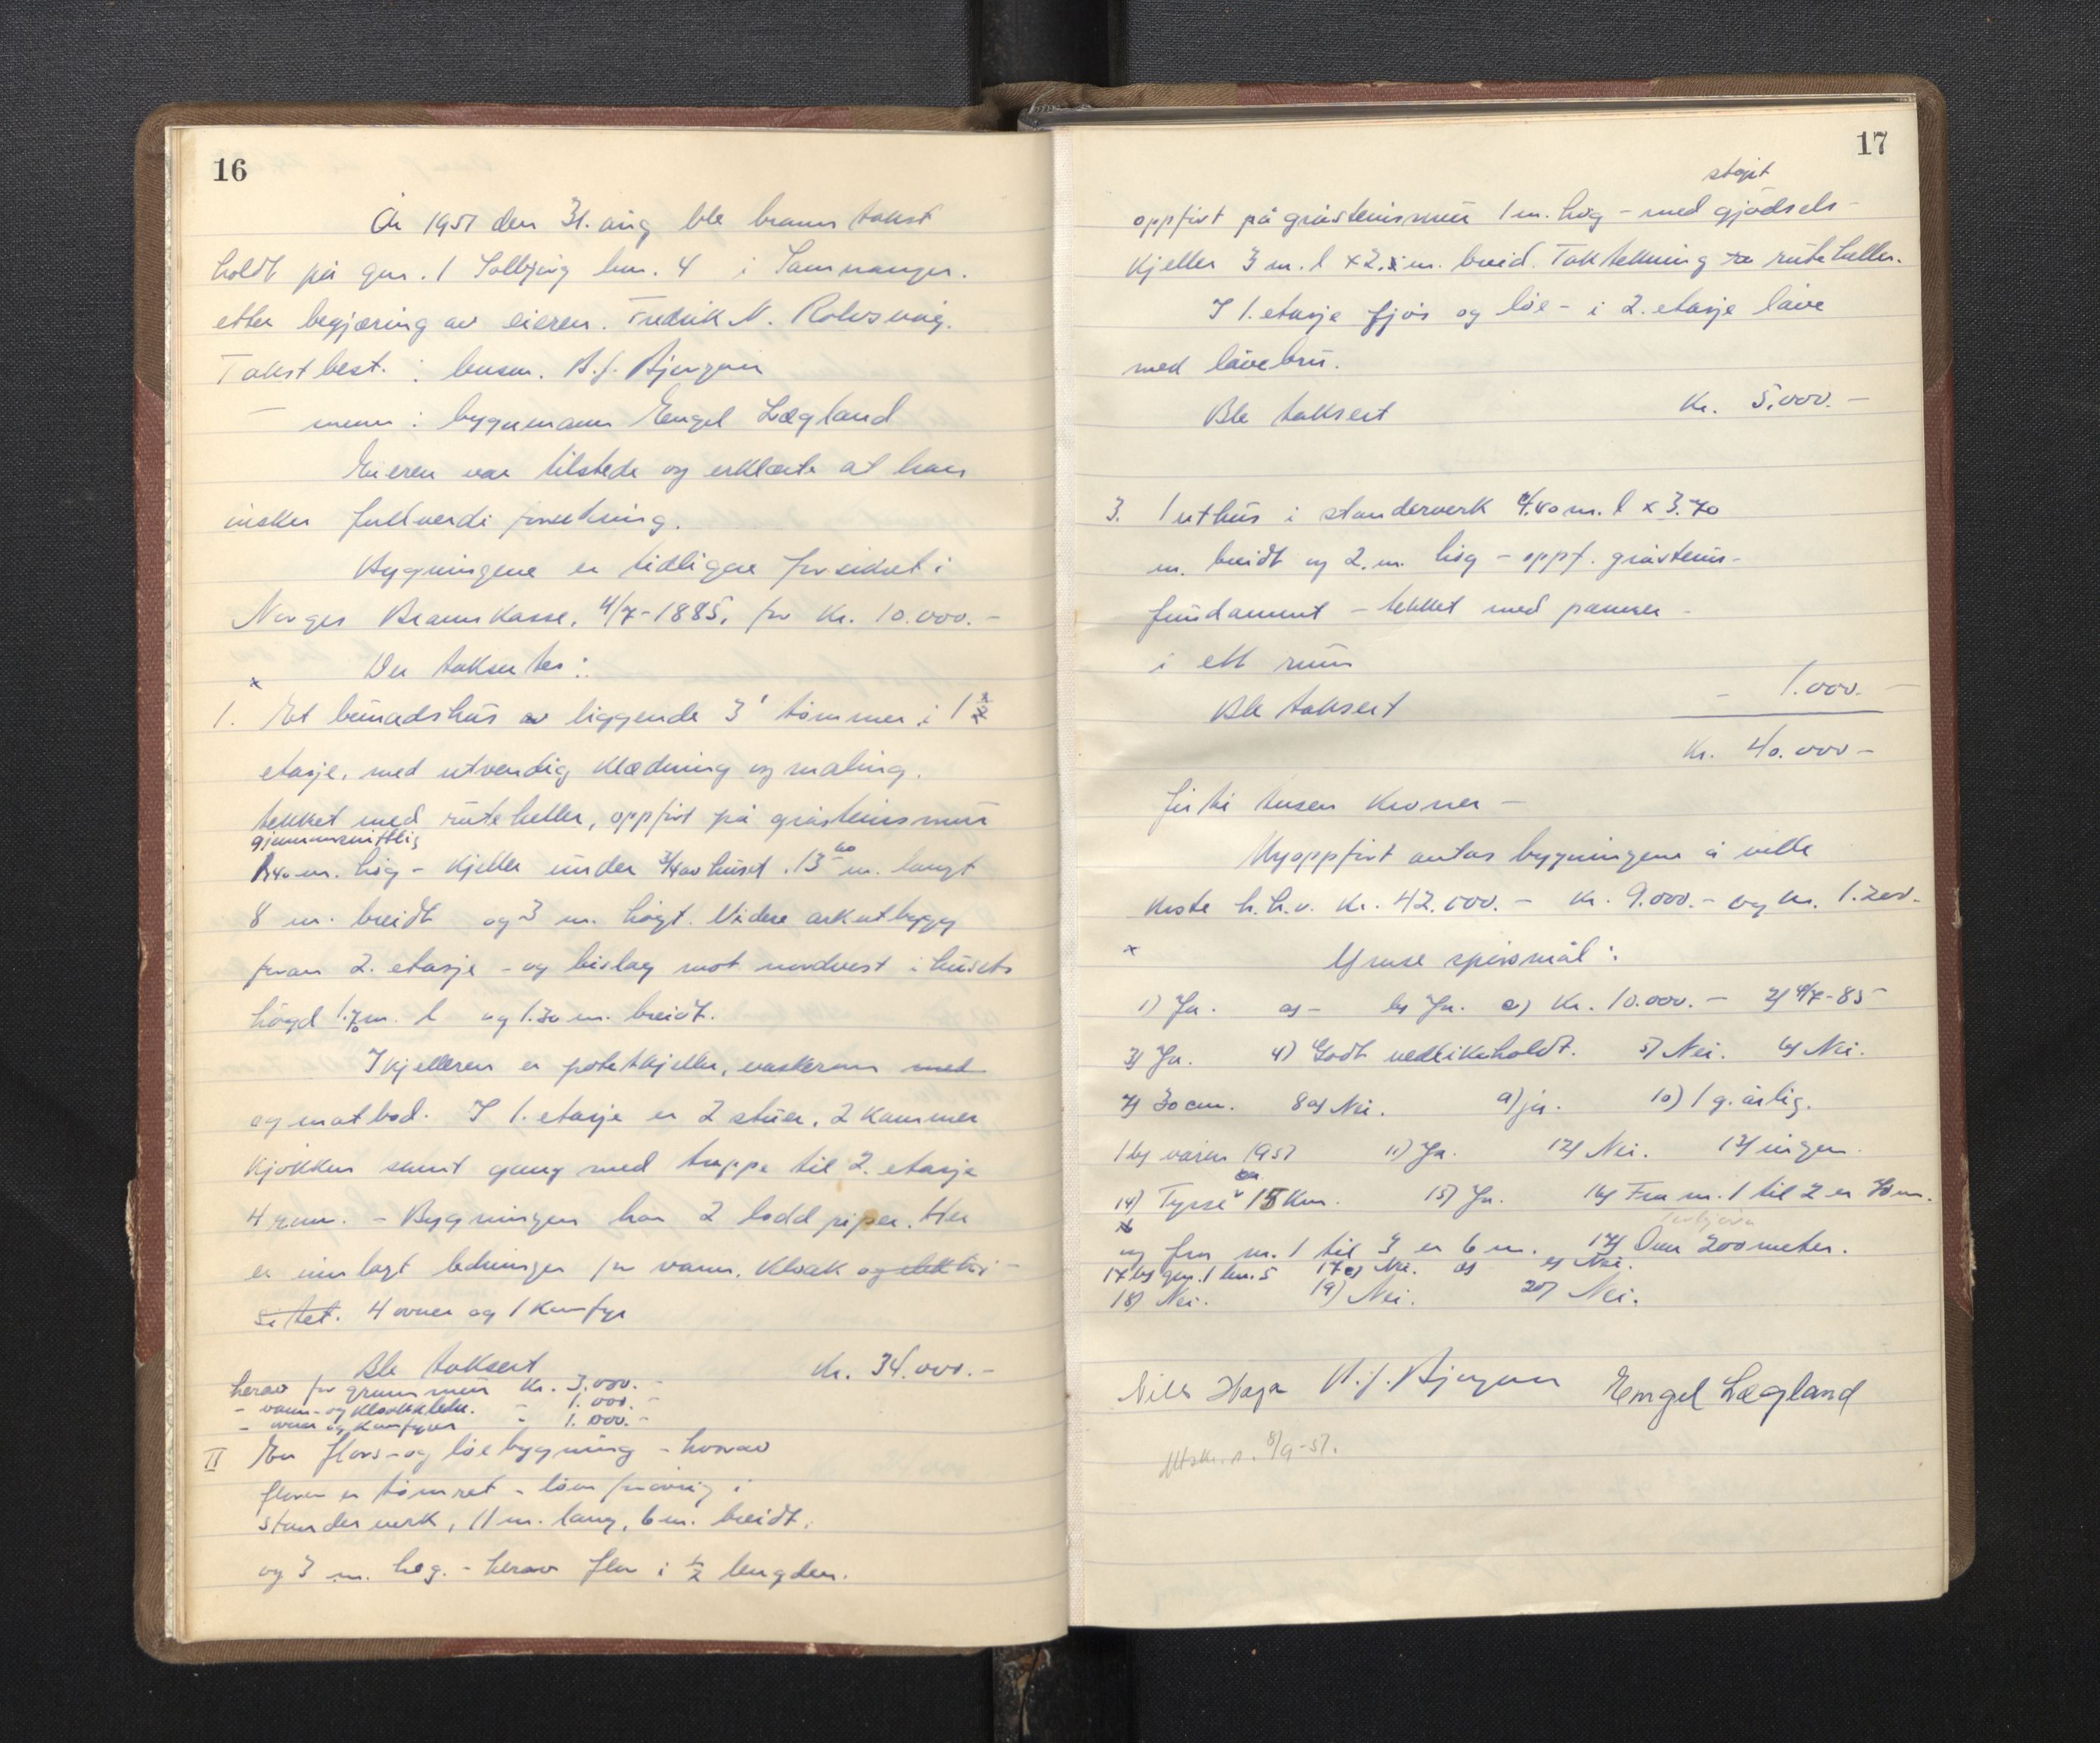 16
År 1951 den 31. aug ble brann takst
holdt på gnr. 1 Solbjørg bnr. 4 i Samnanger.
etter begjæring av eieren. Fredrik N. Rolvsvåg.
Takstbest. : lensm. N. J. Bjørgum
— menn : byggmann Engel Lægland
Eieren var tilstede og erklærte at han
ønsker fullverdi forsikring.
Bygningene er tidligere forsikret i
Norges Brannkasse, 4/7-1885, for kr. 10.000.-
Der takseres :
x
1. Et bunadshus av liggende 3' tømmer i 1 1/2
etasje, med utvendig klædning og maling.
tekket med ruteheller, oppført på gråsteinsmur
gjennomsnittlig
1.40 m. høg - kjeller under 3/4 av huset. 13 40 m. langt
8 m. breidt og 3 m. høgt. Videre arkutbygg
foran 2. etasje - og bislag mot nordvest i husets
høgd 1.70 m. l og 1.30 m. breidt.
I kjelleren er potetkjeller, vaskerom med
og matbod. I 1. etasje er 2 stuer, 2 kammer
kjøkken samt gang med trappe til 2. etasje
4 rum. - Bygningen har 2 lodd piper. Her
er innlagt ledninger for vann, kloak og elektri-
sitet. 4 ovner og 1 komfyr
Ble taksert Kr. 34.000.-
herav for grunnmur Kr. 3.000.-
- vann- og kloakkledn. - 1.000.-
- ovner og komfyrer - 1.000.-
II En flors- og løebygning - hvorav
floren er tømret - løen forøvrig i
standerverk, 11 m. lang, 6 m. breidt,
og 3 m. høg. - herav flor i 1/2 lengden.
17
støpt
oppført på gråsteinsmur 1 m. høg - med gjødsels-
kjeller 3 m. l x 2.5 m. breid. Taktekning ru ruteheller.
I 1. etasje fjøs og løe - i 2. etasje låve
med låvebru.
Ble taksert Kr. 5.000.-
3. 1 uthus i standerverk 4.40 m. l x 3.70
m. breidt og 2. m. høg - oppf. gråsteins-
fundament - tekket med panner -
i ett rum
Ble taksert - 1.000.-
Kr. 40.000-
førti tusen kroner -
Nyoppført antas bygningene å ville
koste h.h.v. kr. 42.000.- kr. 9.000.- og kr. 1.200.-
x
Ymse spørsmål :
1) Ja. a) - b) Ja. c) Kr. 10.000.- 2) 4/7-85
3) Ja. 4) Godt vedlikeholdt. 5) Nei. 6) Nei.
7) 30 cm. 8 a) Nei. 9) ja. 10) 1 g. årlig.
1 b) våren 1951 11) Ja. 12) Nei. 13) ingen.
ca.
14) Tysse 15 km. 15) Ja. 16) Fra nr. 1 til 2 er 30 m.
x
og fra nr. 1 til 3 er 6 m. 17) Over 200 meter.
17 b) gnr. 1 bnr. 5 17 c) Nei. d) e) Nei.
18) Nei. 19) Nei. 20) Nei.
Nils Haga N. J. Bjørgum Engel Lægland
Utskr. s. 8/9-51.